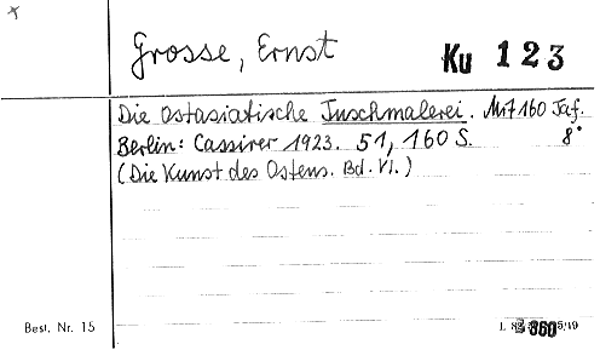 Grosse, Ernst
Ku 123
Die ostasiatische Tuschmalerei. Mit 160 Taf.
Berlin: Cassirer 1923. 51, 160 S. 8°
(Die Kunst des Ostens. Bd. VI.)
Best. Nr. 15